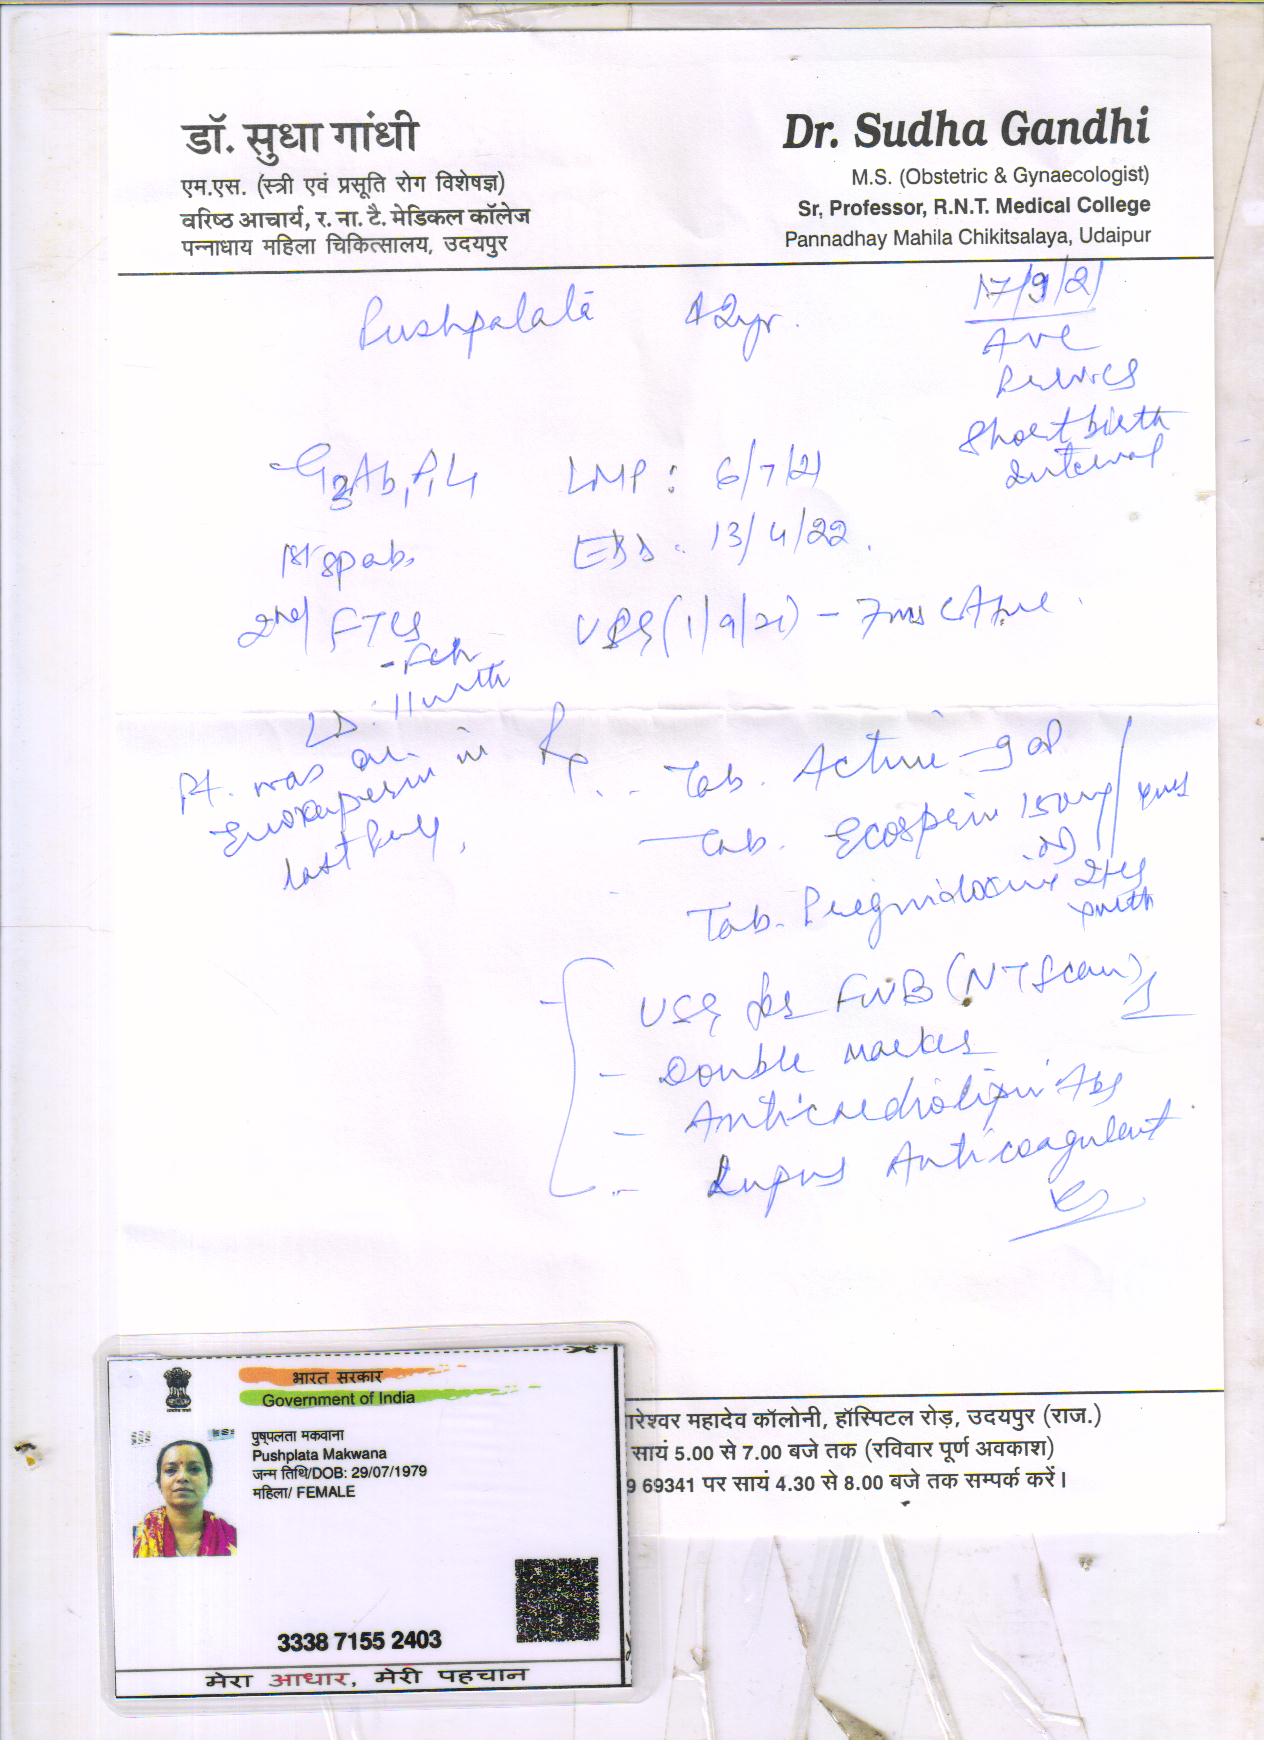 डॉ. सुधा गांधी
एम.एस. (स्त्री एवं प्रसूति रोग विशेषज्ञ)
वरिष्ठ आचार्य, र. ना. टै. मेडिकल कॉलेज
पन्नाधाय महिला चिकित्सालय, उदयपुर
Dr. Sudha Gandhi
M.S. (Obstetric & Gynaecologist)
Sr, Professor, R.N.T. Medical College
Pannadhay Mahila Chikitsalaya, Udaipur
Pushpalata 42yr.
17/9/21
Short birth
Interval
G3Ab1P1L1 LMP: 6/7/21
1st spab. EDD. 13/4/22.
2nd FTLS USG (1/9/21) - 7
- Fch
LD: 11 mth
Pt. was on
in
last
Rx
Tab. 9 OD
Tab. Ecosprin 150mg
OD
Tab. Pregnidoxine
USG for FWB (NT Scan)
- Double marker
- Anticardiolipin Abs
- Lupus Anticoagulant
रेश्वर महादेव कॉलोनी, हॉस्पिटल रोड़, उदयपुर (राज.)
सायं 5.00 से 7.00 बजे तक (रविवार पूर्ण अवकाश)
9 69341 पर सायं 4.30 से 8.00 बजे तक सम्पर्क करें।
भारत सरकार
Government of India
पुष्पलता मकवाना
Pushplata Makwana
जन्म तिथि/DOB: 29/07/1979
महिला/ FEMALE
3338 7155 2403
मेरा आधार, मेरी पहचान